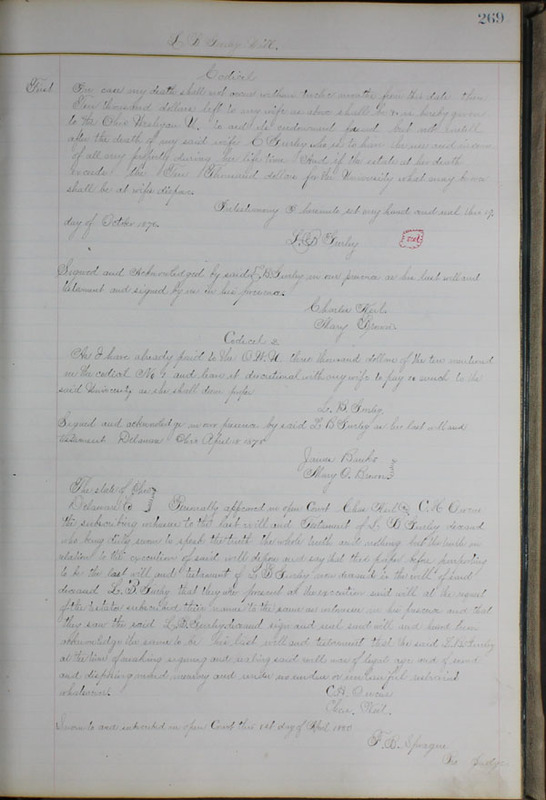 269
L. B. Gurley Will.
Codical
First In case my death shall not occur within twelve months from this date then
Ten thousand dollars left to my wife as above shall be & is hereby given
to the Ohio Wesleyan U. to aid its endowment fund but not until
after the death of my said wife C Gurley who is to have the use and income
of all my property during her life time And if the estate at her death
exceeds the Ten Thousand dollars for the University what may be over
shall be at wifes disposal.
In testimony I hereunto set my hand and seal this
day of October 187
L B Gurley seal
Signed and Acknowledged by said L B Gurley in our presence as his last will and
testament and signed by us in his presence.
Charles
Mary Brown
Codical 2
As I have already paid to the O.W.U. three thousand dollars of the ten mentioned
in the codical No 1 and leave it discretional with my wife to pay so much to the
said University as she shall deem proper
L. B. Gurley
Signed and acknowledge in our presence by said L B Gurley as his last will and
testament Delaware Ohio April 18 187
James Banks
Mary O. Brown
The state of Ohio
Delaware Co Personally appeared in open Court Chas & C. A. Owen
the subscribing witnesses to the last will and Testament of L. B Gurley deceased
who being duly sworn to speak the truth the whole truth and nothing but the truth in
relation to the execution of said will depose and say that the paper before purporting
to be the last will and testament of L B Gurley now deceased is the will of said
deceased L. B. Gurley that they were present at the execution said will at the request
of the testator subscribed their names to the same as witnesses in his presence and that
they saw the said L. B. Gurley deceased sign and seal said will and heard him
acknowledge the same to be his last will and testament that the said L B Gurley
at the time of making signing and sealing said will was of legal age and of sound
and disposing mind memory and under no undue or unlawful restraint
whatsoever.
C. A. Owen
Chas.
Sworn to and subscribed in open Court this day of April 1880
F. B. Sprague
Pro Judge